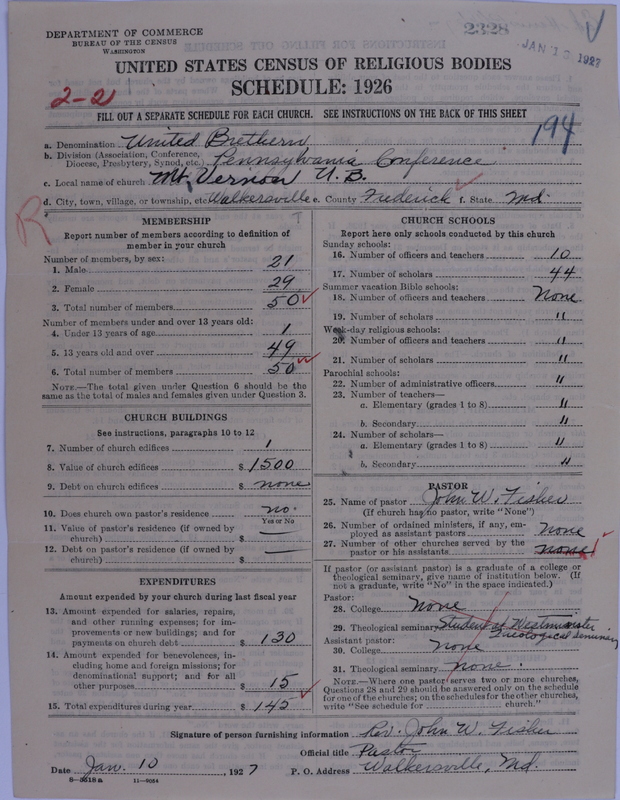 DEPARTMENT OF COMMERCE
BUREAU OF THE CENSUS
WASHINGTON
2328
JAN 13 1927
UNITED STATES CENSUS OF RELIGIOUS BODIES
SCHEDULE: 1926
2-2
FILL OUT A SEPARATE SCHEDULE FOR EACH CHURCH. SEE INSTRUCTIONS ON THE BACK OF THIS SHEET
194
a. Denomination United Brethern
b. Division (Association, Conference, Diocese, Presbytery, Synod, etc.) Pennsylvania Conference
c. Local name of church Mt. Vernon U.B.
d. City, town, village, or township, etc. Walkersville e. County Frederick f. State Md.
R
MEMBERSHIP
Report number of members according to definition of member in your church
Number of members, by sex:
1. Male 21
2. Female 29
3. Total number of members 50
Number of members under and over 13 years old:
4. Under 13 years of age 1
5. 13 years old and over 49
6. Total number of members 50
NOTE.—The total given under Question 6 should be the same as the total of males and females given under Question 3.
CHURCH BUILDINGS
See instructions, paragraphs 10 to 12
7. Number of church edifices 1
8. Value of church edifices $ 1500
9. Debt on church edifices $ none
10. Does church own pastor's residence no.
Yes or No
11. Value of pastor's residence (if owned by church) $ —
12. Debt on pastor's residence (if owned by church) $ —
EXPENDITURES
Amount expended by your church during last fiscal year
13. Amount expended for salaries, repairs, and other running expenses; for improvements or new buildings; and for payments on church debt $ 130
14. Amount expended for benevolences, including home and foreign missions; for denominational support; and for all other purposes $ 15
15. Total expenditures during year $ 145
CHURCH SCHOOLS
Report here only schools conducted by this church
Sunday schools:
16. Number of officers and teachers 10
17. Number of scholars 44
Summer vacation Bible schools:
18. Number of officers and teachers None
19. Number of scholars "
Week-day religious schools:
20. Number of officers and teachers "
21. Number of scholars "
Parochial schools:
22. Number of administrative officers "
23. Number of teachers—
a. Elementary (grades 1 to 8) "
b. Secondary "
24. Number of scholars—
a. Elementary (grades 1 to 8) "
b. Secondary "
PASTOR
25. Name of pastor John W. Fisher
(If church has no pastor, write "None")
26. Number of ordained ministers, if any, employed as assistant pastors None
27. Number of other churches served by the pastor or his assistants none 1
If pastor (or assistant pastor) is a graduate of a college or theological seminary, give name of institution below. (If not a graduate, write "No" in the space indicated.)
Pastor:
28. College None
29. Theological seminary Student at Westminster Theological seminary
Assistant pastor:
30. College None
31. Theological seminary none.
NOTE.—Where one pastor serves two or more churches, Questions 28 and 29 should be answered only on the schedule for one of the churches; on the schedules for the other churches, write "See schedule for church."
Signature of person furnishing information Rev. John W. Fisher
Official title Pastor
Date Jan. 10 1927 P. O. Address Walkersville, Md.
8-5518a 11-9084